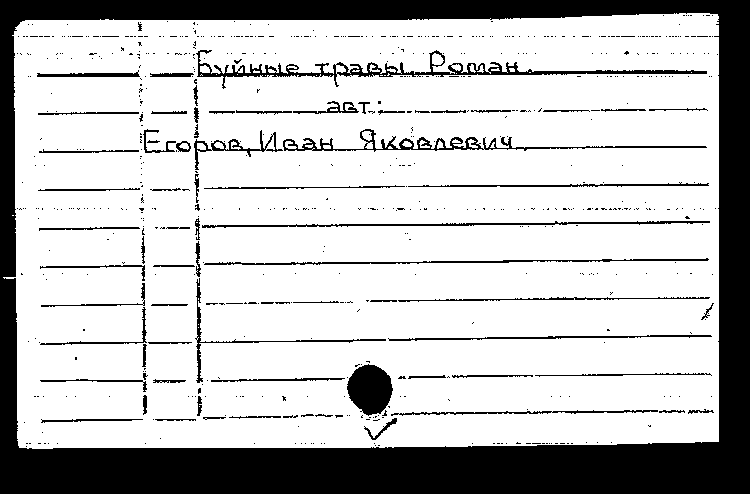 Буйные травы. Роман.
авт:
Егоров, Иван Яковлевич.